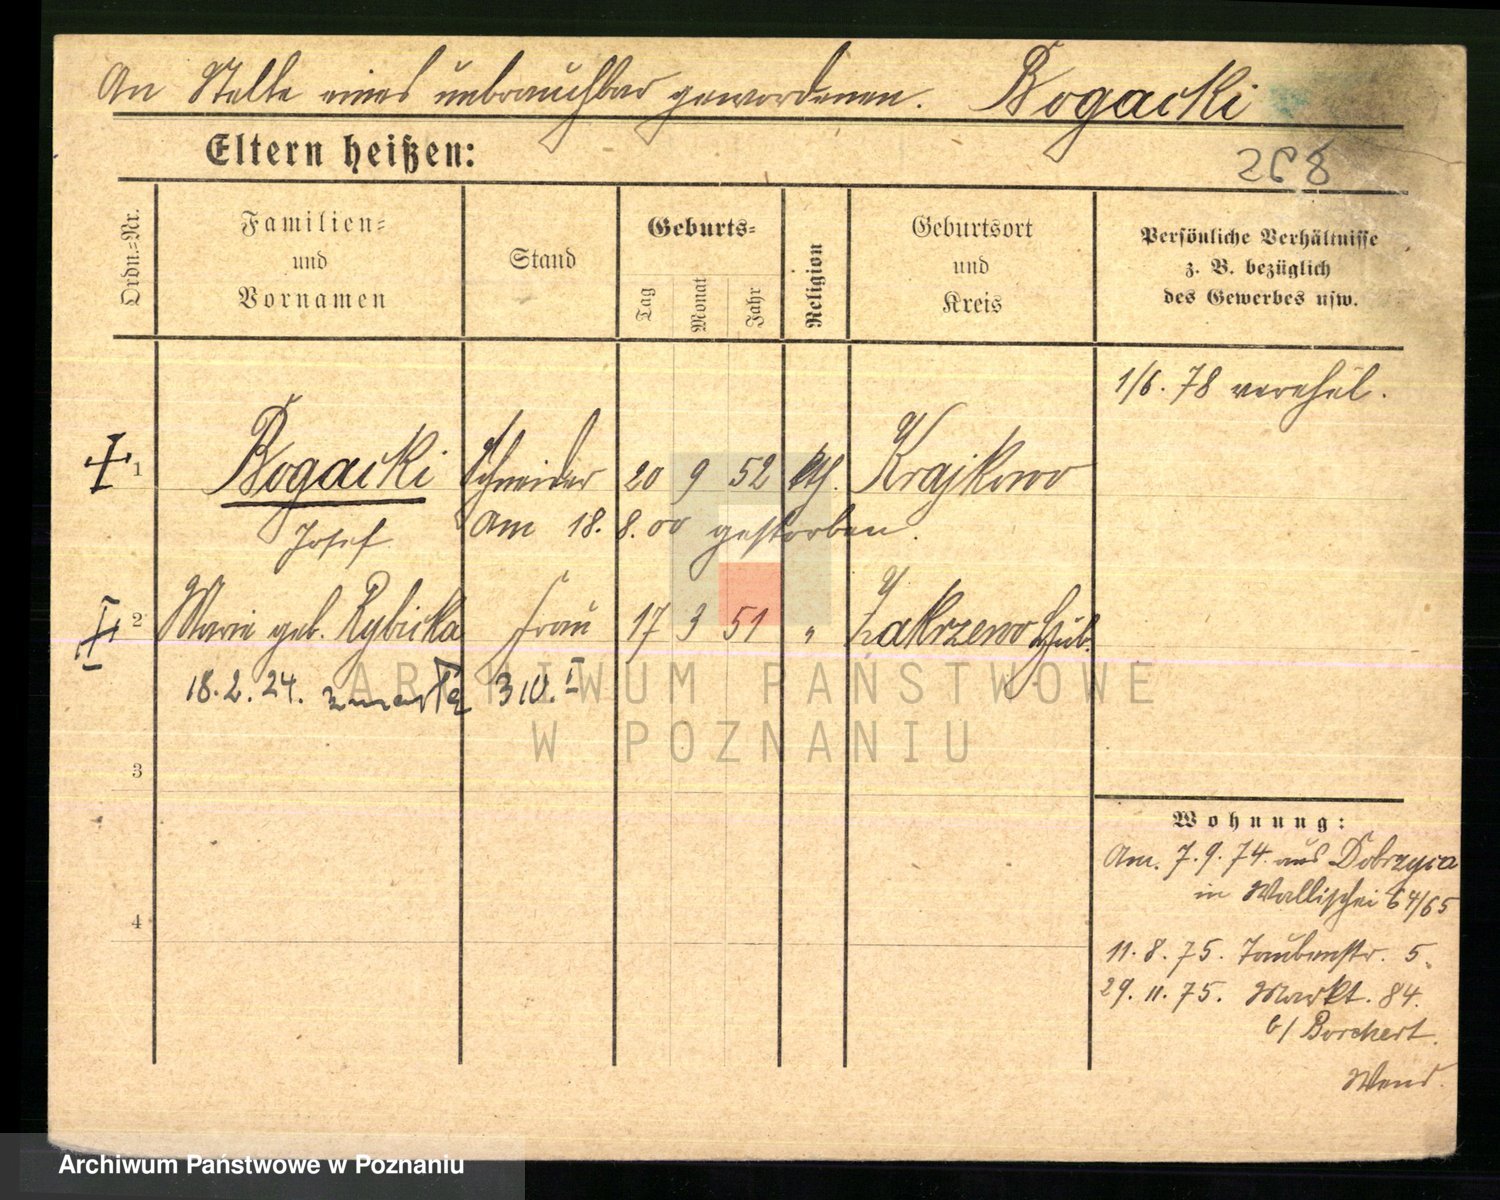 An Stelle eines unbrauchbar gewordenen. Bogacki
Eltern heißen:
268
Ordn.=Nr.
Familien=
und
Vornamen
Stand
Geburts=
Tag
Monat
Jahr
Religion
Geburtsort
und
Kreis
Persönliche Verhältnisse
z. B. bezüglich
des Gewerbes usw.
1/6. 78 verehel.
1 Bogacki Schneider 20 9 52 kth. Krajkowo
Josef
Am 18. 8. 00 gestorben.
2 Marie geb. Rybicka Frau 17 3 51 " Zakrzewo
18. 2. 24. zmarła
3
4
Wohnung:
Am. 7. 9. 74. aus Dobrzyca
in Wallischei 64/65
11. 8. 75. Taubenstr. 5.
29. 11. 75. Markt. 84.
b/ Borchert.
Wend.
ARCHIWUM PAŃSTWOWE
W POZNANIU
Archiwum Państwowe w Poznaniu